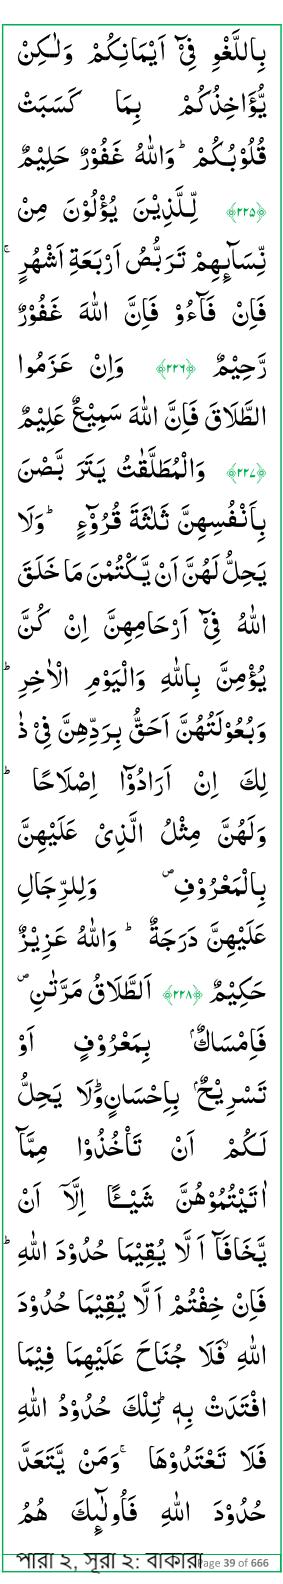 بِاللَّغۡوِ فِىۡٓ اَيۡمَانِكُمۡ وَلٰـكِنۡ
يُّؤَاخِذُكُمۡ بِمَا كَسَبَتۡ
قُلُوۡبُكُمۡ‌ؕ وَاللّٰهُ غَفُوۡرٌ حَلِيۡمٌ
﴿۲۲۵﴾ لِّـلَّذِيۡنَ يُؤۡلُوۡنَ مِنۡ
نِّسَآٮِٕهِمۡ تَرَبُّصُ اَرۡبَعَةِ اَشۡهُرٍۚ
فَاِنۡ فَآءُوۡ فَاِنَّ اللّٰهَ غَفُوۡرٌ
رَّحِيۡمٌ ﴿۲۲۶﴾ وَاِنۡ عَزَمُوا
الطَّلَاقَ فَاِنَّ اللّٰهَ سَمِيۡعٌ عَلِيۡمٌ
﴿۲۲۷﴾ وَالۡمُطَلَّقٰتُ يَتَرَ بَّصۡنَ
بِاَنۡفُسِهِنَّ ثَلٰثَةَ قُرُوۡٓءٍؕ وَلَا
يَحِلُّ لَهُنَّ اَنۡ يَّكۡتُمۡنَ مَا خَلَقَ
اللّٰهُ فِىۡٓ اَرۡحَامِهِنَّ اِنۡ كُنَّ
يُؤۡمِنَّ بِاللّٰهِ وَالۡيَوۡمِ الۡاٰخِرِؕ
وَبُعُوۡلَتُهُنَّ اَحَقُّ بِرَدِّهِنَّ فِىۡ ذٰ
لِكَ اِنۡ اَرَادُوۡٓا اِصۡلَاحًاؕ
وَلَهُنَّ مِثۡلُ الَّذِىۡ عَلَيۡهِنَّ
بِالۡمَعۡرُوۡفِ‌ۖ وَلِلرِّجَالِ
عَلَيۡهِنَّ دَرَجَةٌ ؕ وَاللّٰهُ عَزِيۡزٌ
حَكِيۡمٌ ﴿۲۲۸﴾ اَلطَّلَاقُ مَرَّتٰنِ‌ۖ
فَاِمۡسَاكٌۢ بِمَعۡرُوۡفٍ اَوۡ
تَسۡرِيۡحٌۢ بِاِحۡسَانٍ‌ؕ وَلَا يَحِلُّ
لَـکُمۡ اَنۡ تَاۡخُذُوۡا مِمَّآ
اٰتَيۡتُمُوۡهُنَّ شَيۡـًٔا اِلَّاۤ اَنۡ
يَّخَافَآ اَ لَّا يُقِيۡمَا حُدُوۡدَ اللّٰهِ‌ؕ
فَاِنۡ خِفۡتُمۡ اَ لَّا يُقِيۡمَا حُدُوۡدَ
اللّٰهِۙ فَلَا جُنَاحَ عَلَيۡهِمَا فِيۡمَا
افۡتَدَتۡ بِهٖؕ‌ تِلۡكَ حُدُوۡدُ اللّٰهِ
فَلَا تَعۡتَدُوۡهَا ‌ۚ وَمَنۡ يَّتَعَدَّ
حُدُوۡدَ اللّٰهِ فَاُولٰٓٮِٕكَ هُمُ
পারা ২, সূরা ২: বাকারা Page 39 of 666